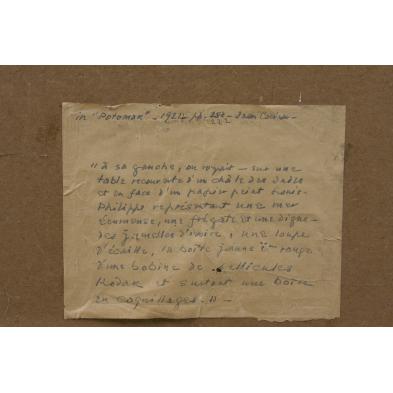 in "Potomak" - 1924 pp. 282 - Jean Cocteau -
222
"à sa gauche, on voyait - sur une
table recouverte d'un châle des Indes
et en face d'un papier peint Louis-
Philippe représentant une mer
écumeuse, une frégate et une digue -
des jumelles d'ivoire, une loupe
d'écaille, la boîte jaune et rouge
d'une bobine de pellicules
Kodak et surtout une boîte
en coquillages." -